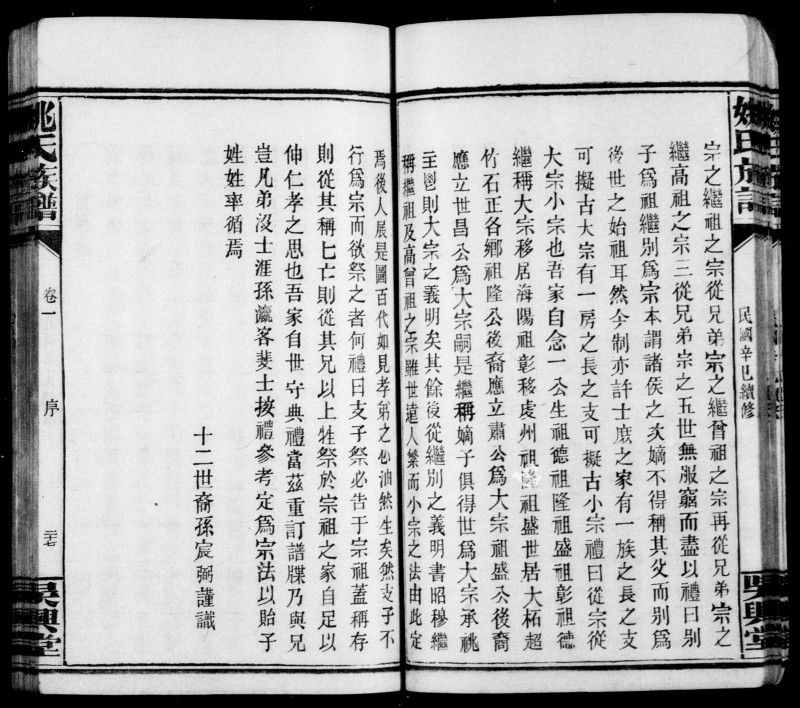 姚氏族譜
民國辛巳續修
吳興堂
宗之繼祖之宗從兄弟宗之繼曾祖之宗再從兄弟宗之
繼高祖之宗三從兄弟宗之五世無服竆而盡以禮曰別
子爲祖繼別爲宗本謂諸侯之次嫡不得稱其父而別爲
後世之始祖耳然今制亦許士庶之家有一族之長之支
可擬古大宗有一房之長之支可擬古小宗禮曰從宗從
大宗小宗也吾家自念一公生祖德祖隆祖盛祖彰祖德
繼稱大宗移居海陽祖彰移處州祖隆祖盛世居大柘超
竹石正各鄉祖隆公後裔應立肅公爲大宗祖盛公後裔
應立世昌公爲大宗嗣是繼稱嫡子俱得世爲大宗承祧
主鬯則大宗之義明矣其餘後從繼別之義明書昭穆繼
稱繼祖及高曾祖之宗雖世遠人繁而小宗之法由此定
焉後人展是圖百代如見孝弟之心油然生矣然支子不
行爲宗而欲祭之者何禮曰支子祭必告于宗祖蓋稱存
則從其稱七亡則從其兄以上牲祭於宗祖之家自足以
伸仁孝之思也吾家自世守典禮當茲重訂譜牒乃與兄
豈凡弟沒士涯孫瀛客斐士按禮參考定爲宗法以貽子
姓姓率循焉
十二世裔孫宸弼謹識
姚氏族譜
卷一
序
二十七
吳興堂